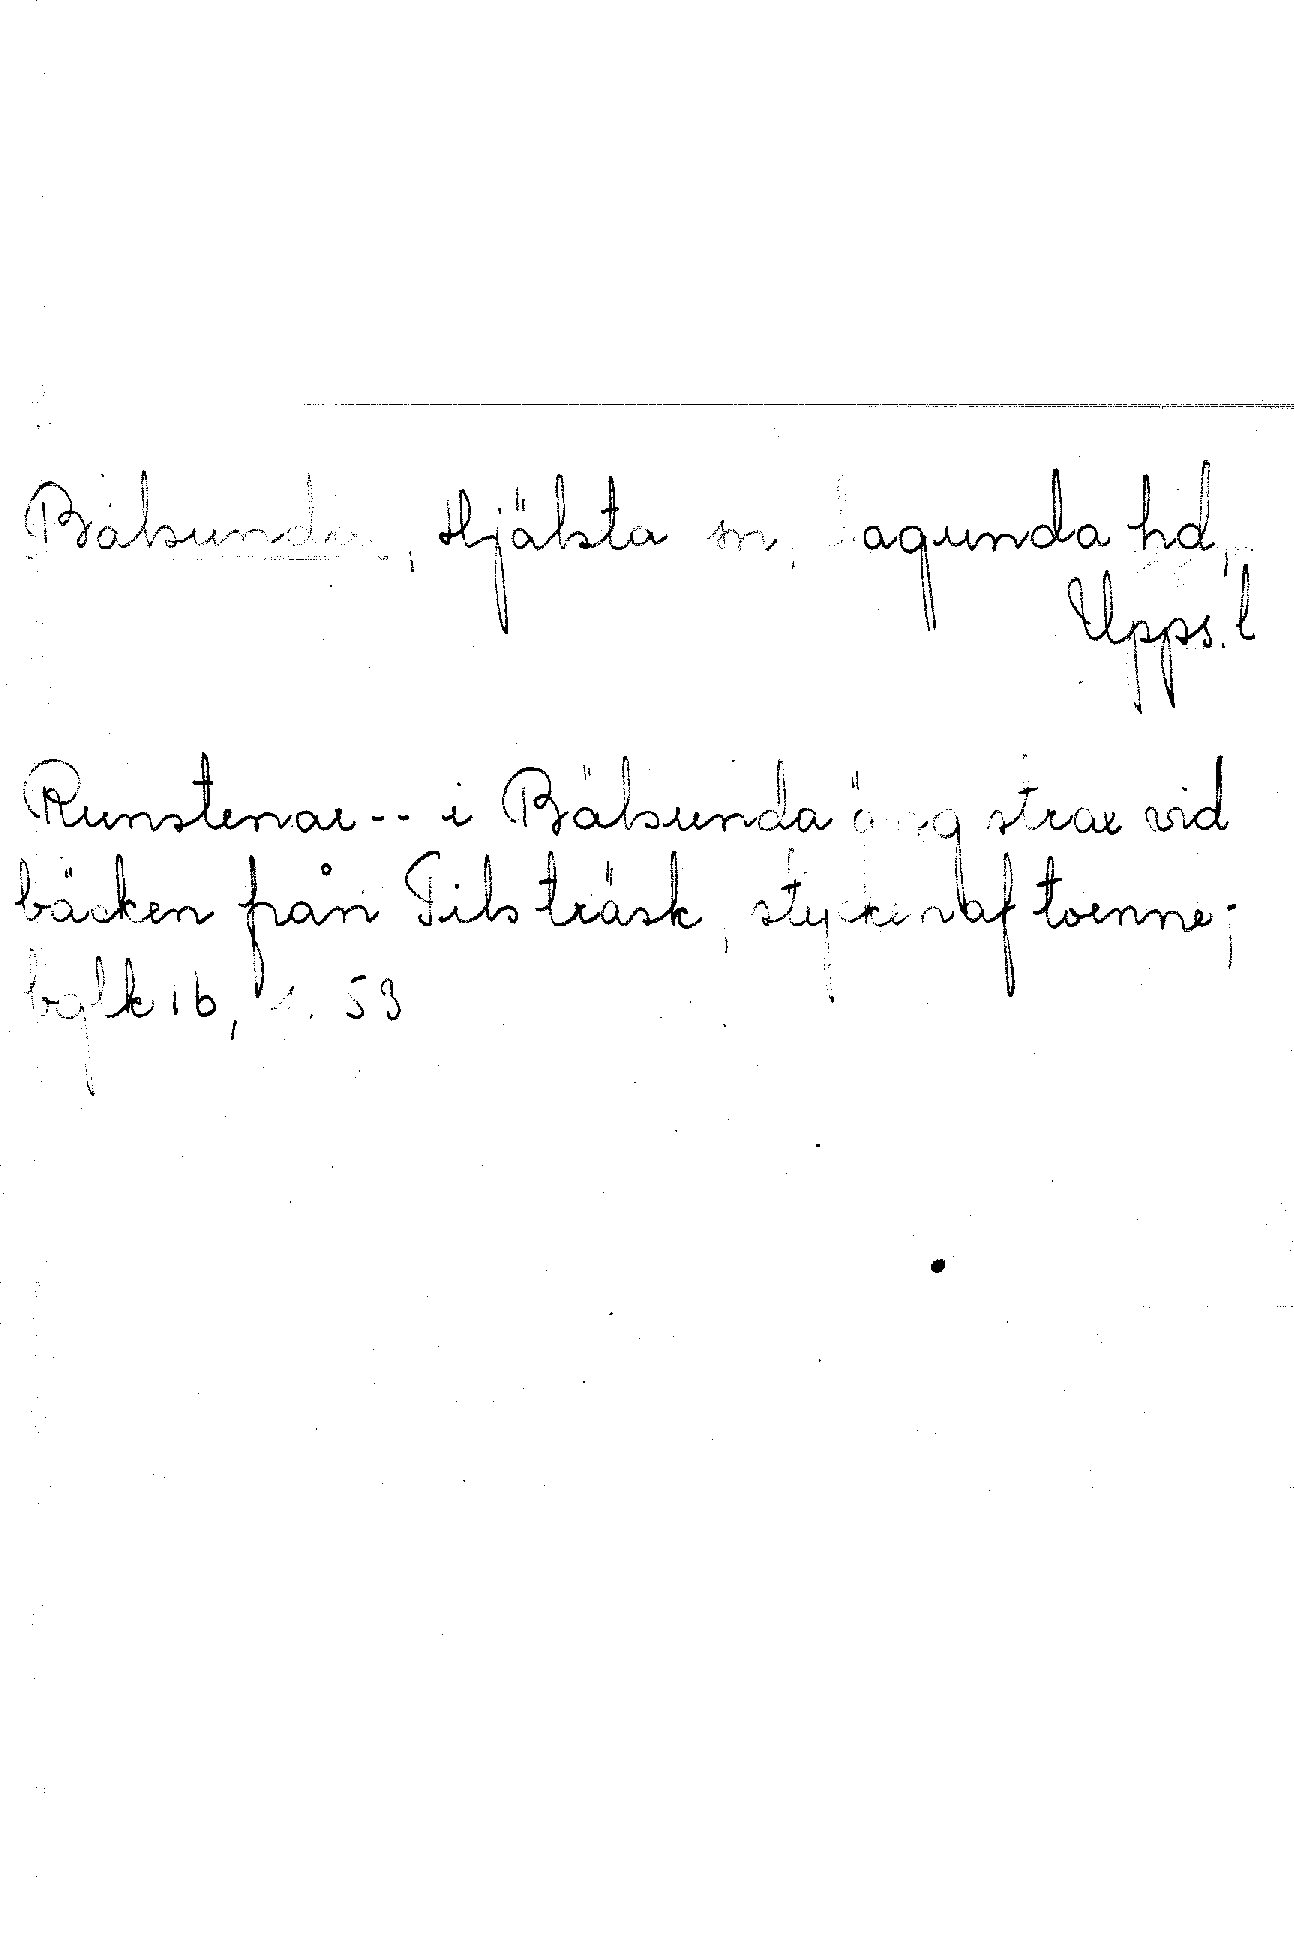 Bälsunda, Hjälsta sn, Lagunda hd,
Upps. l
Runstenar -- i Bälsunda äng strax vid
bäcken från Tilsträsk, stycken af tvenne;
bglk 1b, s. 53